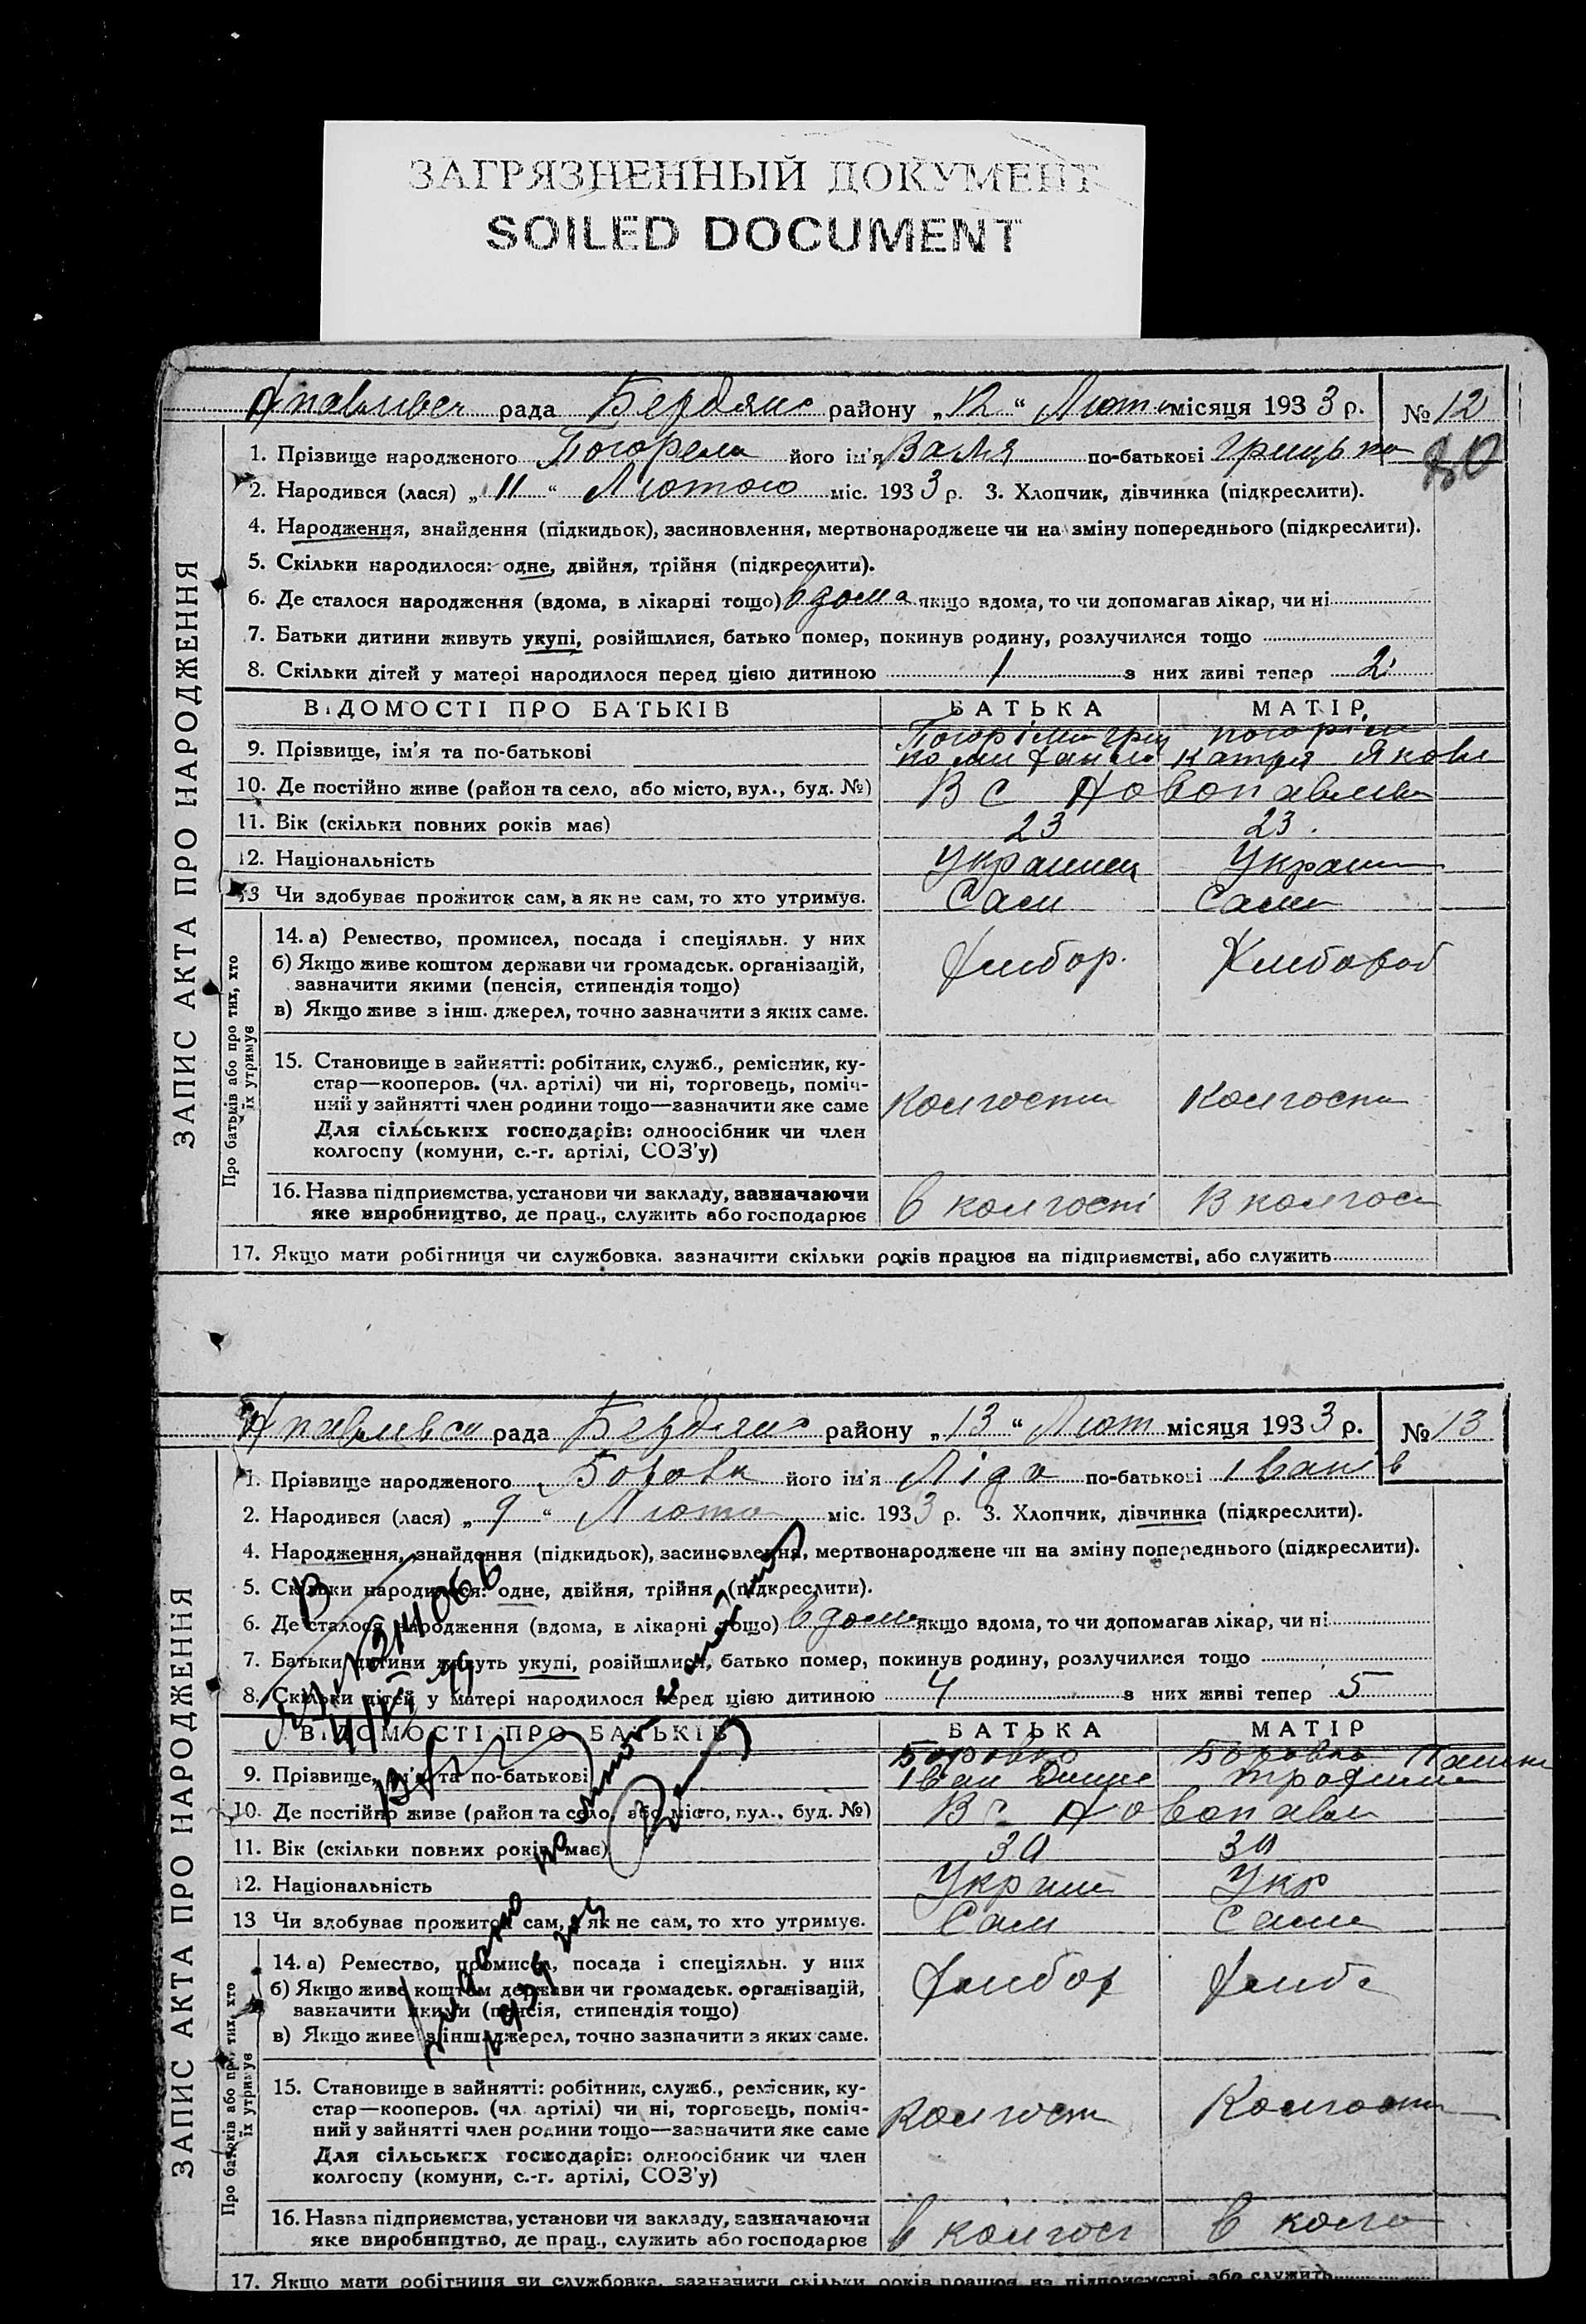 ЗАГРЯЗНЕННЫЙ ДОКУМЕНТ
SOILED DOCUMENT
рада Бердянс району „12“ Люто місяця 1933 р. № 12
80
1. Прізвище народженого Погорєла його ім'я Валя по-батькові Грицько
2. Народився (лася) „11“ Лютого міс. 1933 р. 3. Хлопчик, дівчинка (підкреслити).
4. Народження, знайдення (підкидьок), засиновлення, мертвонароджене чи на зміну попереднього (підкреслити).
5. Скільки народилося: одне, двійня, трійня (підкреслити).
6. Де сталося народження (вдома, в лікарні тощо) вдома якщо вдома, то чи допомагав лікар, чи ні
7. Батьки дитини живуть укупі, розійшлися, батько помер, покинув родину, розлучилися тощо
8. Скільки дітей у матері народилося перед цією дитиною 1 з них живі тепер 2
ВІДОМОСТІ ПРО БАТЬКІВ БАТЬКА МАТІР
9. Прізвище, ім'я та по-батькові Катря Якови
10. Де постійно живе (район та село, або місто, вул., буд. №) В с Новопавлівка
11. Вік (скільки повних років має) 23 23.
12. Національність Українец Україн
13 Чи здобуває прожиток сам, а як не сам, то хто утримує. Сам Сама
14. а) Ремество, промисел, посада і спеціяльн. у них
б) Якщо живе коштом держави чи громадськ. організацій, Хлибор. Хлибороб
зазначити якими (пенсія, стипендія тощо)
в) Якщо живе з інш. джерел, точно зазначити з яких саме.
15. Становище в зайнятті: робітник, служб., ремісник, ку-
стар—кооперов. (чл. артілі) чи ні, торговець, поміч-
ний у зайнятті член родини тощо—зазначити яке саме Колгоспн Колгоспн
Для сільських господарів: одноосібник чи член
колгоспу (комуни, с.-г. артілі, СОЗ'у)
16. Назва підприємства, установи чи закладу, зазначаючи
яке виробництво, де прац., служить або господарює в колгоспі В колгосп
17. Якщо мати робітниця чи службовка. зазначити скільки років працює на підприємстві, або служить
ЗАПИС АКТА ПРО НАРОДЖЕННЯ
Про батьків або про тих, хто
їх утримує
рада Бердянс району „13“ Лют місяця 1933 р. № 13
1. Прізвище народженого Боровк його ім'я Ліда по-батькові Іванів
2. Народився (лася) „9“ Люто міс. 1933 р. 3. Хлопчик, дівчинка (підкреслити).
4. Народження, знайдення (підкидьок), засиновлення, мертвонароджене чи на зміну попереднього (підкреслити).
5. Скільки народилося: одне, двійня, трійня (підкреслити).
6. Де сталося народження (вдома, в лікарні тощо) вдома якщо вдома, то чи допомагав лікар, чи ні
7. Батьки дитини живуть укупі, розійшлися, батько помер, покинув родину, розлучилися тощо
8. Скільки дітей у матері народилося перед цією дитиною 4 з них живі тепер 5
ВІДОМОСТІ ПРО БАТЬКІВ БАТЬКА МАТІР
Боровко Боровко
9. Прізвище, ім'я та по-батькові Іван
10. Де постійно живе (район та село, або місто, вул., буд. №) В с Новопавл
11. Вік (скільки повних років має) 30 30
12. Національність Україн Укр
13 Чи здобуває прожиток сам, а як не сам, то хто утримує. Сам Сама
14. а) Ремество, промисел, посада і спеціяльн. у них
б) Якщо живе коштом держави чи громадськ. організацій, Хлибор Хлиб
зазначити якими (пенсія, стипендія тощо)
в) Якщо живе з інш. джерел, точно зазначити з яких саме.
15. Становище в зайнятті: робітник, служб., ремісник, ку-
стар—кооперов. (чл. артілі) чи ні, торговець, поміч-
ний у зайнятті член родини тощо—зазначити яке саме Колгосп Колгоспн
Для сільських господарів: одноосібник чи член
колгоспу (комуни, с.-г. артілі, СОЗ'у)
16. Назва підприємства, установи чи закладу, зазначаючи
яке виробництво, де прац., служить або господарює в колгосп в колго
17. Якщо мати робітниця чи службовка. зазначити скільки років працює на підприємстві, або служить
ЗАПИС АКТА ПРО НАРОДЖЕННЯ
Про батьків або про тих, хто
їх утримує